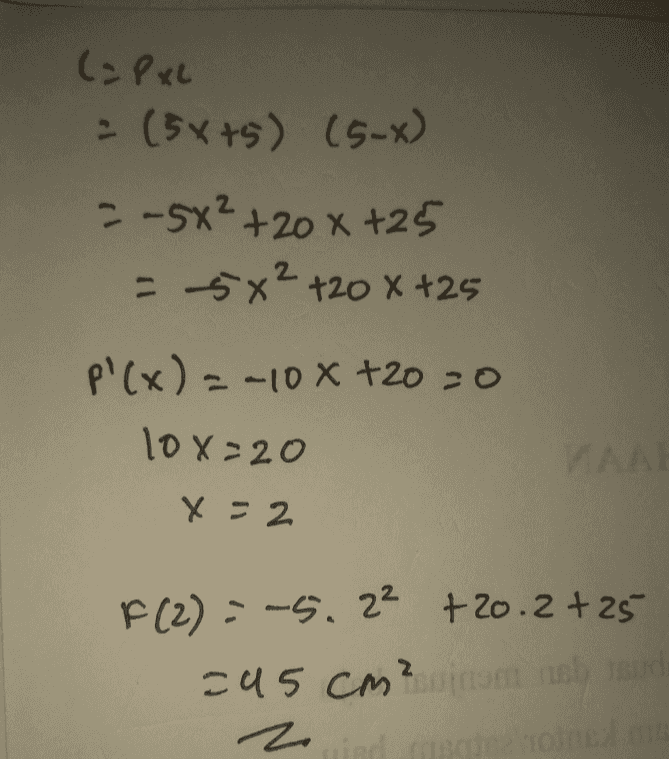 L = P x L
= (5x+5) (5-x)
= -5x² +20 x +25
= -5x² +20 x +25
P'(x) = -10 x +20 = 0
10 x = 20
x = 2
F(2) = -5. 2² +20.2 +25
= 45 cm²